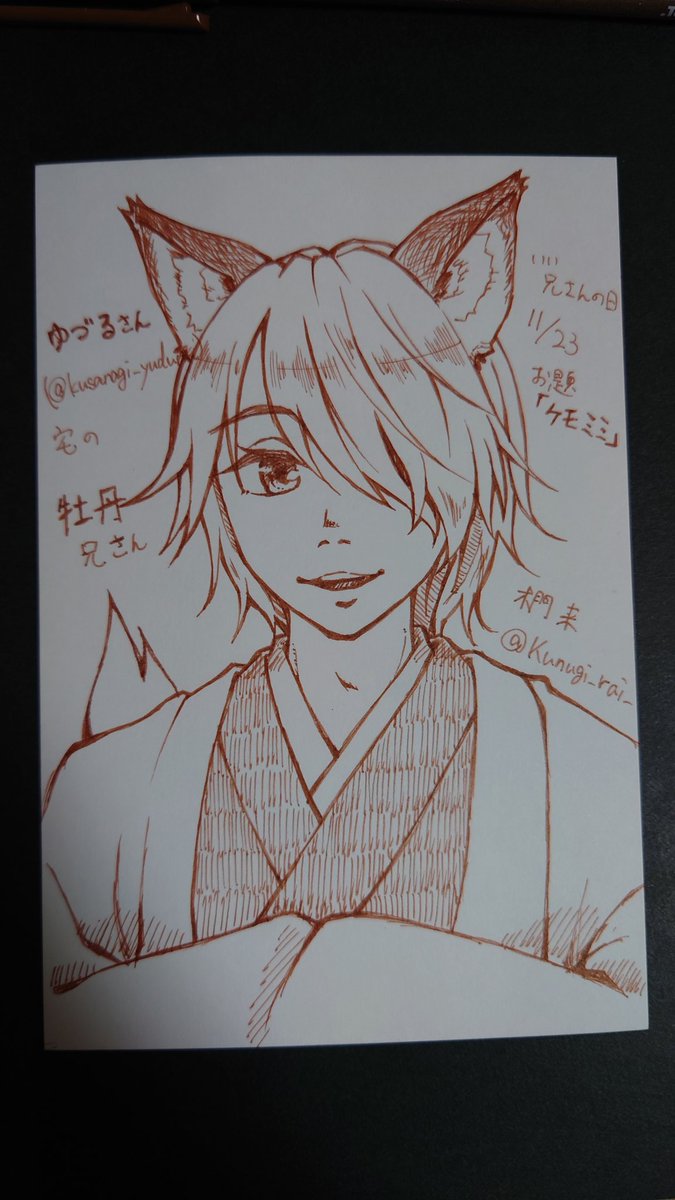 ゆづるさん
(@kusanagi_yudu
宅の
牡丹
兄さん
いい
兄さんの日
11/23
お題
「ケモミミ」
椚来
@Kunugi_rai_